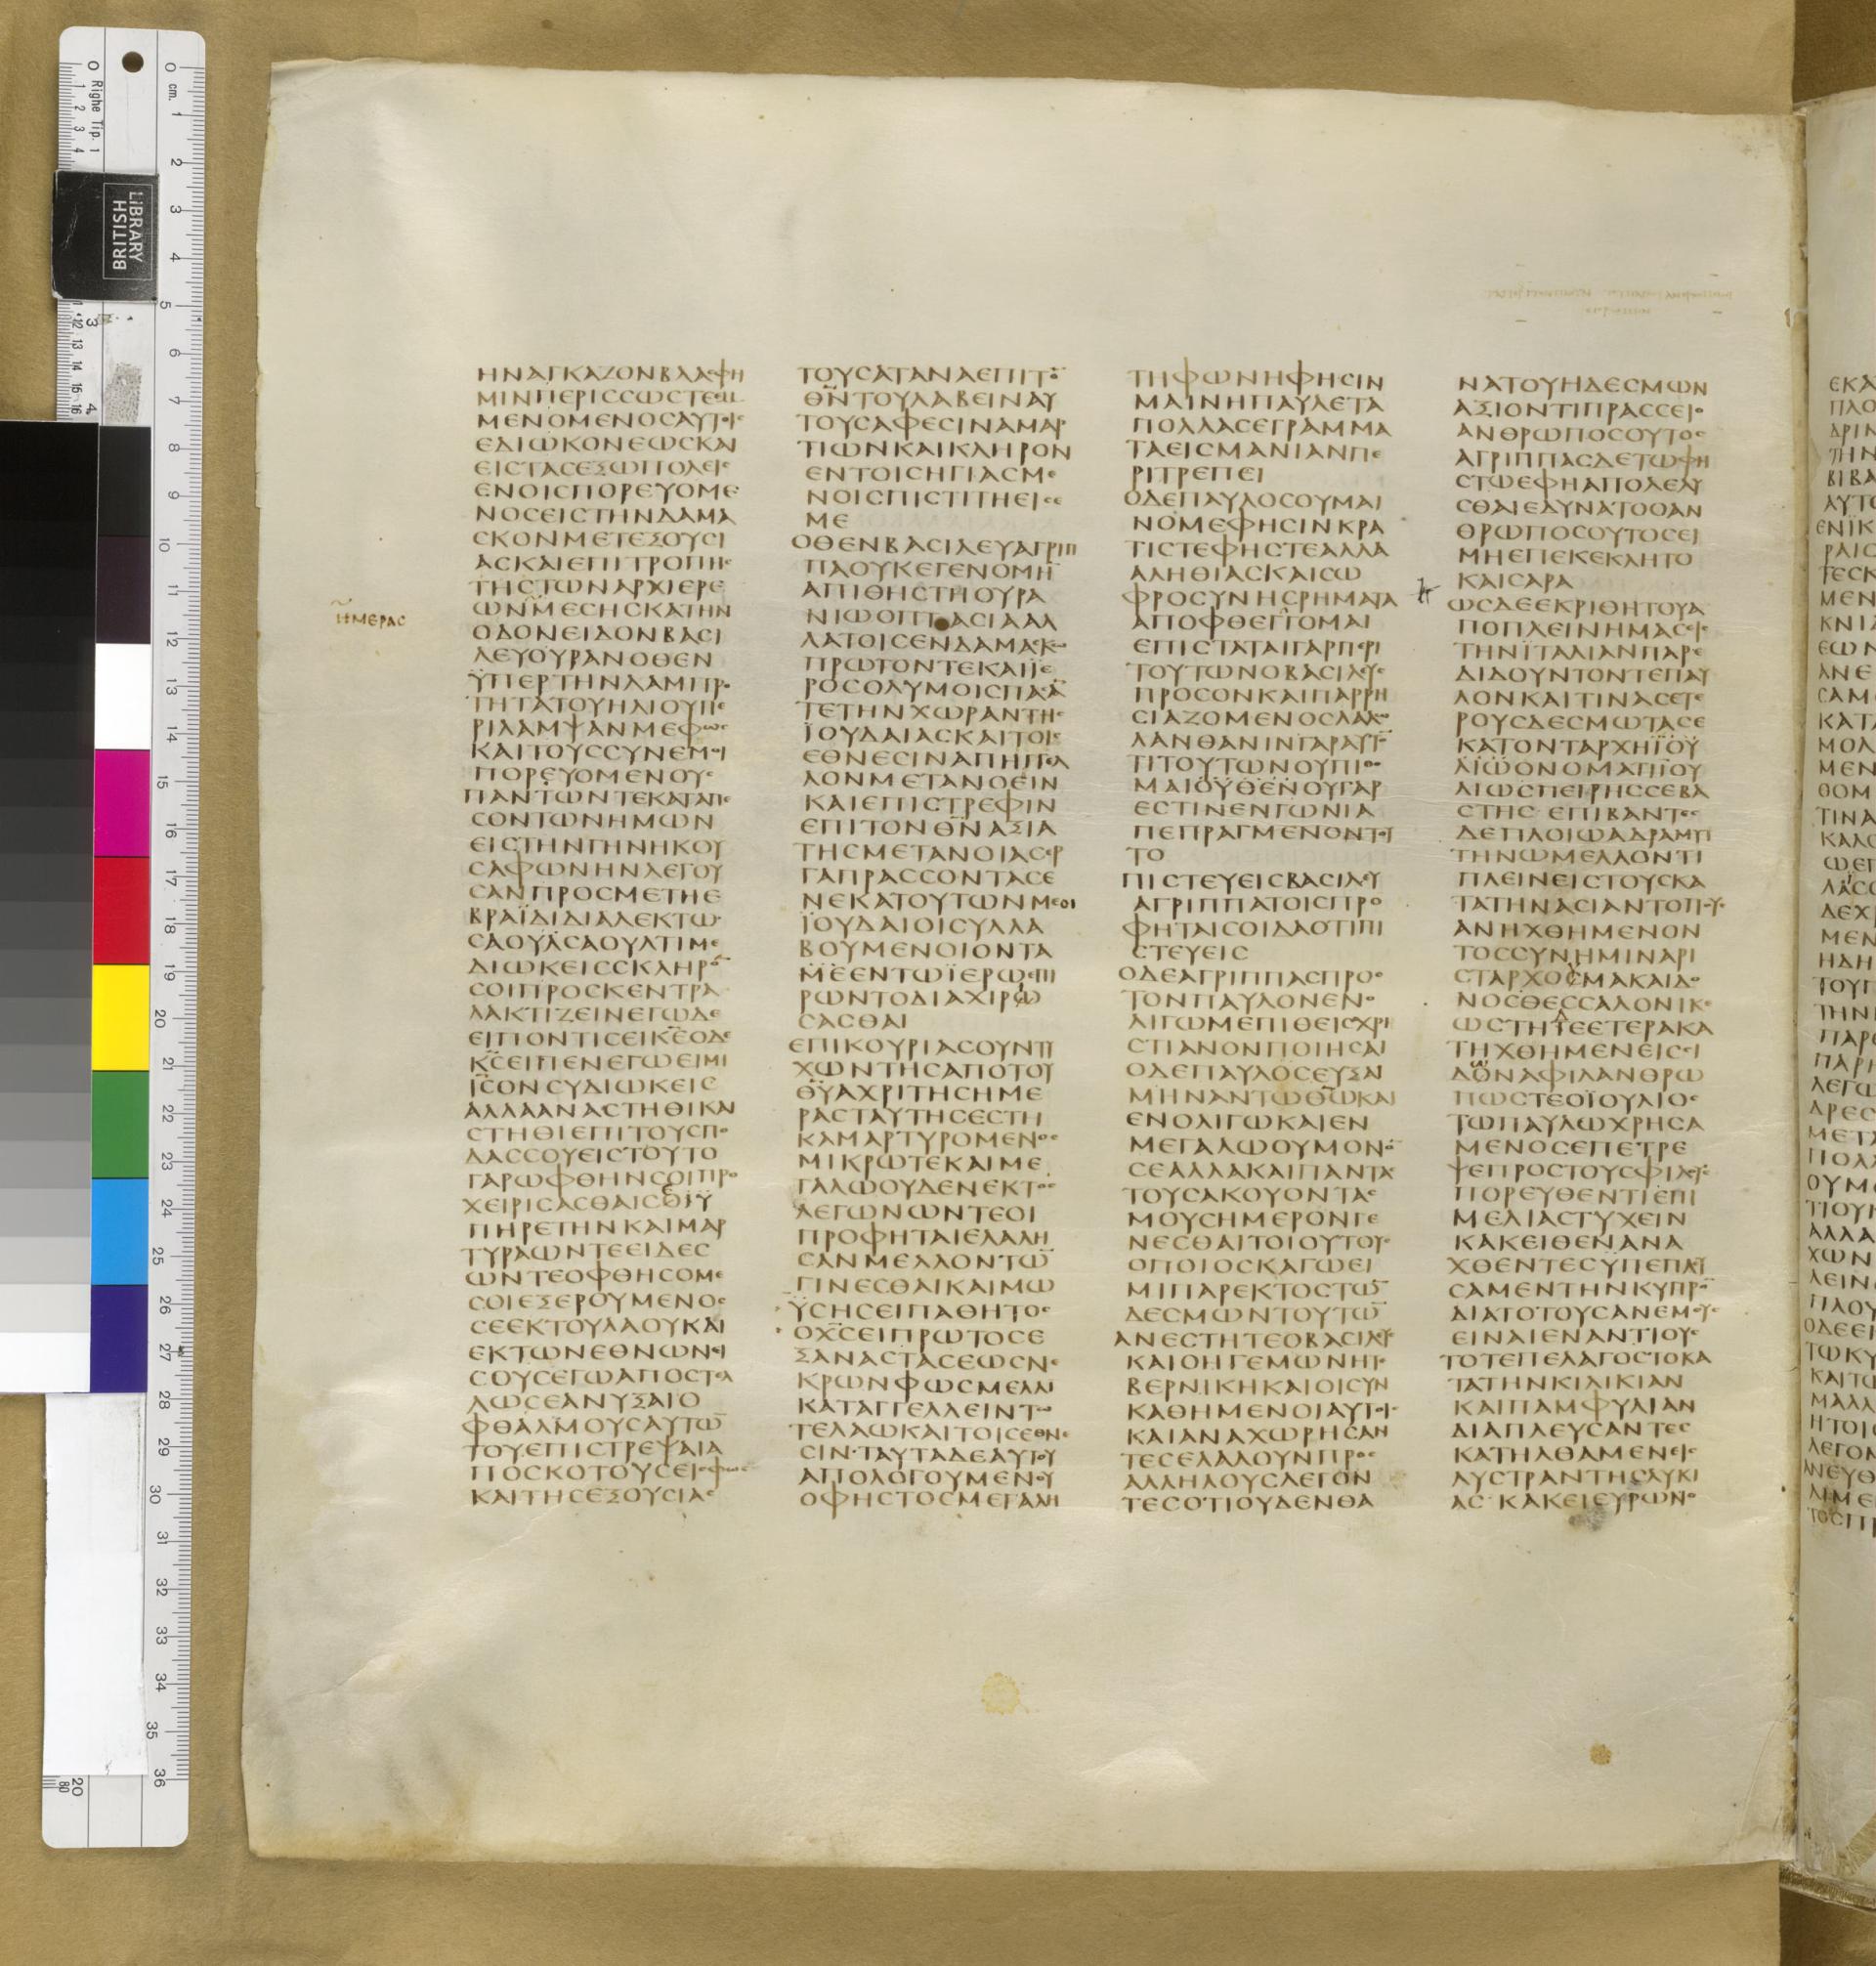 ΗΝΑΓΚΑΖΟΝΒΛΑϹΦΗ
ΜΙΝΠΕΡΙϹϹΩϹΤΕΕΜ
ΜΕΝΟΜΕΝΟϹΑΥΤΟΙϹ
ΕΔΙΩΚΟΝΕΩϹΚΑΙ
ΕΙϹΤΑϹΕΞΩΠΟΛΕΙϹ
ΕΝΟΙϹΠΟΡΕΥΟΜΕ
ΝΟϹΕΙϹΤΗΝΔΑΜΑ
ϹΚΟΝΜΕΤΕΞΟΥϹΙ
ΑϹΚΑΙΕΠΙΤΡΟΠΗϹ
ΤΗϹΤΩΝΑΡΧΙΕΡΕ
ΗΜΕΡΑϹ
ΩΝΜΕϹΗϹΚΑΤΗΝ
ΟΔΟΝΕΙΔΟΝΒΑϹΙ
ΛΕΥΟΥΡΑΝΟΘΕΝ
ΫΠΕΡΤΗΝΛΑΜΠΡΟ
ΤΗΤΑΤΟΥΗΛΙΟΥΠΕ
ΡΙΛΑΜΨΑΝΜΕΦΩϹ
ΚΑΙΤΟΥϹϹΥΝΕΜΟΙ
ΠΟΡΕΥΟΜΕΝΟΥϹ
ΠΑΝΤΩΝΤΕΚΑΤΑΠΕ
ϹΟΝΤΩΝΗΜΩΝ
ΕΙϹΤΗΝΓΗΝΗΚΟΥ
ϹΑΦΩΝΗΝΛΕΓΟΥ
ϹΑΝΠΡΟϹΜΕΤΗΕ
ΒΡΑΪΔΙΔΙΑΛΕΚΤΩ
ϹΑΟΥΛϹΑΟΥΛΤΙΜΕ
ΔΙΩΚΕΙϹϹΚΛΗΡΟ̅
ϹΟΙΠΡΟϹΚΕΝΤΡΑ
ΛΑΚΤΙΖΕΙΝΕΓΩΔΕ
ΕΙΠΟΝΤΙϹΕΙΚ̅Ε̅ΟΔΕ
Κ̅Ϲ̅ΕΙΠΕΝΕΓΩΕΙΜΙ
Ι̅Ϲ̅ΟΝϹΥΔΙΩΚΕΙϹ
ΑΛΛΑΑΝΑϹΤΗΘΙΚΑΙ
ϹΤΗΘΙΕΠΙΤΟΥϹΠΟ
ΔΑϹϹΟΥΕΙϹΤΟΥΤΟ
ΓΑΡΩΦΘΗΝϹΟΙΠΡΟ
ΧΕΙΡΙϹΑϹΘΑΙϹΕΫ
ΠΗΡΕΤΗΝΚΑΙΜΑΡ
ΤΥΡΑΩΝΤΕΕΙΔΕϹ
ΩΝΤΕΟΦΘΗϹΟΜΕ
ϹΟΙΕΞΕΡΟΥΜΕΝΟϹ
ϹΕΕΚΤΟΥΛΑΟΥΚΑΙ
ΕΚΤΩΝΕΘΝΩΝΟΙ
ϹΟΥϹΕΓΩΑΠΟϹΤΕΛ
ΛΩϹΕΑΝΥΞΑΙΟ
ΦΘΑΛΜΟΥϹΑΥΤΩ̅
ΤΟΥΕΠΙϹΤΡΕΨΑΙΑ
ΠΟϹΚΟΤΟΥϹΕΙϹΦΩϹ
ΚΑΙΤΗϹΕΞΟΥϹΙΑϹ
ΤΟΥϹΑΤΑΝΑΕΠΙΤΟ̅
Θ̅Ν̅ΤΟΥΛΑΒΕΙΝΑΥ
ΤΟΥϹΑΦΕϹΙΝΑΜΑΡ
ΤΙΩΝΚΑΙΚΛΗΡΟΝ
ΕΝΤΟΙϹΗΓΙΑϹΜΕ
ΝΟΙϹΠΙϹΤΙΤΗΕΙϹΕ
ΜΕ
ΟΘΕΝΒΑϹΙΛΕΥΑΓΡΙΠ
ΠΑΟΥΚΕΓΕΝΟΜΗ̅
ΑΠΙΘΗϹΤΗΟΥΡΑ
ΝΙΩΟΠΤΑϹΙΑΑΛ
ΛΑΤΟΙϹΕΝΔΑΜΑϹΚΩ
ΠΡΩΤΟΝΤΕΚΑΙΪΕ
ΡΟϹΟΛΥΜΟΙϹΠΑϹΑ̅
ΤΕΤΗΝΧΩΡΑΝΤΗϹ
ΪΟΥΔΑΙΑϹΚΑΙΤΟΙϹ
ΕΘΝΕϹΙΝΑΠΗΓΓΕΛ
ΛΟΝΜΕΤΑΝΟΕΙΝ
ΚΑΙΕΠΙϹΤΡΕΦΙΝ
ΕΠΙΤΟΝΘ̅Ν̅ΑΞΙΑ
ΤΗϹΜΕΤΑΝΟΙΑϹΕΡ
ΓΑΠΡΑϹϹΟΝΤΑϹΕ
ΝΕΚΑΤΟΥΤΩΝΜΕΟΙ
ΪΟΥΔΑΙΟΙϹΥΛΛΑ
ΒΟΥΜΕΝΟΙΟΝΤΑ
ΜΕΕΝΤΩΪΕΡΩΕΠΙ
ΡΩΝΤΟΔΙΑΧΙΡΩ
ϹΑϹΘΑΙ
ΕΠΙΚΟΥΡΙΑϹΟΥΝΤΥ
ΧΩΝΤΗϹΑΠΟΤΟΥ
Θ̅Υ̅ΑΧΡΙΤΗϹΗΜΕ
ΡΑϹΤΑΥΤΗϹΕϹΤΗ
ΚΑΜΑΡΤΥΡΟΜΕΝΟϹ
ΜΙΚΡΩΤΕΚΑΙΜΕ
ΓΑΛΩΟΥΔΕΝΕΚΤΟϹ
ΛΕΓΩΝΩΝΤΕΟΙ
ΠΡΟΦΗΤΑΙΕΛΑΛΗ
ϹΑΝΜΕΛΛΟΝΤΩ̅
ΓΙΝΕϹΘΑΙΚΑΙΜΩ
ΫϹΗϹΕΙΠΑΘΗΤΟϹ
ΟΧ̅Ϲ̅ΕΙΠΡΩΤΟϹΕ
ΞΑΝΑϹΤΑϹΕΩϹΝΕ
ΚΡΩΝΦΩϹΜΕΛΛΙ
ΚΑΤΑΓΓΕΛΛΕΙΝΤΩ
ΤΕΛΑΩΚΑΙΤΟΙϹΕΘΝΕ
ϹΙΝ·ΤΑΥΤΑΔΕΑΥΤΟΥ
ΑΠΟΛΟΓΟΥΜΕΝΟΥ
ΟΦΗϹΤΟϹΜΕΓΑΛΗ
ΤΗΦΩΝΗΦΗϹΙΝ
ΜΑΙΝΗΠΑΥΛΕΤΑ
ΠΟΛΛΑϹΕΓΡΑΜΜΑ
ΤΑΕΙϹΜΑΝΙΑΝΠΕ
ΡΙΤΡΕΠΕΙ
ΟΔΕΠΑΥΛΟϹΟΥΜΑΙ
ΝΟΜΕΦΗϹΙΝΚΡΑ
ΤΙϹΤΕΦΗϹΤΕΑΛΛΑ
ΑΛΗΘΙΑϹΚΑΙϹΩ
ΦΡΟϹΥΝΗϹΡΗΜΑΤΑ
ΑΠΟΦΘΕΓΓΟΜΑΙ
ΕΠΙϹΤΑΤΑΙΓΑΡΠΕΡΙ
ΤΟΥΤΩΝΟΒΑϹΙΛΕΥϹ
ΠΡΟϹΟΝΚΑΙΠΑΡΡΗ
ϹΙΑΖΟΜΕΝΟϹΛΑΛΩ
ΛΑΝΘΑΝΙΝΓΑΡΑΥΤΟ̅
ΤΙΤΟΥΤΩΝΟΥΠΙΘΟ
ΜΑΙΟΥΘΕΝΟΥΓΑΡ
ΕϹΤΙΝΕΝΓΩΝΙΑ
ΠΕΠΡΑΓΜΕΝΟΝΤΟΥ
ΤΟ
ΠΙϹΤΕΥΕΙϹΒΑϹΙΛΕΥ
ΑΓΡΙΠΠΑΤΟΙϹΠΡΟ
ΦΗΤΑΙϹΟΙΔΑΟΤΙΠΙ
ϹΤΕΥΕΙϹ
ΟΔΕΑΓΡΙΠΠΑϹΠΡΟϹ
ΤΟΝΠΑΥΛΟΝΕΝΟ
ΛΙΓΩΜΕΠΙΘΕΙϹΧΡΙ
ϹΤΙΑΝΟΝΠΟΙΗϹΑΙ
ΟΔΕΠΑΥΛΟϹΕΥΞΑΙ
ΜΗΝΑΝΤΩΘ̅Ω̅ΚΑΙ
ΕΝΟΛΙΓΩΚΑΙΕΝ
ΜΕΓΑΛΩΟΥΜΟΝΟ̅
ϹΕΑΛΛΑΚΑΙΠΑΝΤΑϹ
ΤΟΥϹΑΚΟΥΟΝΤΑϹ
ΜΟΥϹΗΜΕΡΟΝΓΕ
ΝΕϹΘΑΙΤΟΙΟΥΤΟΥϹ
ΟΠΟΙΟϹΚΑΓΩΕΙ
ΜΙΠΑΡΕΚΤΟϹΤΩ̅
ΔΕϹΜΩΝΤΟΥΤΩ̅
ΑΝΕϹΤΗΤΕΟΒΑϹΙΛΕΥϹ
ΚΑΙΟΗΓΕΜΩΝΗΤΕ
ΒΕΡΝΙΚΗΚΑΙΟΙϹΥΝ
ΚΑΘΗΜΕΝΟΙΑΥΤΟΙϹ
ΚΑΙΑΝΑΧΩΡΗϹΑΝ
ΤΕϹΕΛΑΛΟΥΝΠΡΟϹ
ΑΛΛΗΛΟΥϹΛΕΓΟΝ
ΤΕϹΟΤΙΟΥΔΕΝΘΑ
ΝΑΤΟΥΗΔΕϹΜΩΝ
ΑΞΙΟΝΤΙΠΡΑϹϹΕΙΟ
ΑΝΘΡΩΠΟϹΟΥΤΟϹ
ΑΓΡΙΠΠΑϹΔΕΤΩΦΗ
ϹΤΩΕΦΗΑΠΟΛΕΛΥ
ϹΘΑΙΕΔΥΝΑΤΟΟΑΝ
ΘΡΩΠΟϹΟΥΤΟϹΕΙ
ΜΗΕΠΕΚΕΚΛΗΤΟ
ΚΑΙϹΑΡΑ
ΩϹΔΕΕΚΡΙΘΗΤΟΥΑ
ΠΟΠΛΕΙΝΗΜΑϹΕΙϹ
ΤΗΝΪΤΑΛΙΑΝΠΑΡΕ
ΔΙΔΟΥΝΤΟΝΤΕΠΑΥ
ΛΟΝΚΑΙΤΙΝΑϹΕΤΕ
ΡΟΥϹΔΕϹΜΩΤΑϹΕ
ΚΑΤΟΝΤΑΡΧΗΪΟΥ
ΛΙΩΟΝΟΜΑΤΙΪΟΥ
ΛΙΩϹΠΕΙΡΗϹϹΕΒΑ
ϹΤΗϹ·ΕΠΙΒΑΝΤΕϹ
ΔΕΠΛΟΙΩΑΔΡΑΜΥΤ
ΤΗΝΩΜΕΛΛΟΝΤΙ
ΠΛΕΙΝΕΙϹΤΟΥϹΚΑ
ΤΑΤΗΝΑϹΙΑΝΤΟΠΟΥϹ
ΑΝΗΧΘΗΜΕΝΟΝ
ΤΟϹϹΥΝΗΜΙΝΑΡΙ
ϹΤΑΡΧΟΥΜΑΚΑΙΔΟ
ΝΟϹΘΕϹϹΑΛΟΝΙΚΕ
ΩϹΤΗΤΕΕΤΕΡΑΚΑ
ΤΗΧΘΗΜΕΝΕΙϹϹΙ
ΔΟΝΑΦΙΛΑΝΘΡΩ
ΠΩϹΤΕΟΪΟΥΛΙΟϹ
ΤΩΠΑΥΛΩΧΡΗϹΑ
ΜΕΝΟϹΕΠΕΤΡΕ
ΨΕΠΡΟϹΤΟΥϹΦΙΛΟΥϹ
ΠΟΡΕΥΘΕΝΤΙΕΠΙ
ΜΕΛΙΑϹΤΥΧΕΙΝ
ΚΑΚΕΙΘΕΝΑΝΑ
ΧΘΕΝΤΕϹΥΠΕΠΛΕΥ
ϹΑΜΕΝΤΗΝΚΥΠΡΟ̅
ΔΙΑΤΟΤΟΥϹΑΝΕΜΟΥϹ
ΕΙΝΑΙΕΝΑΝΤΙΟΥϹ
ΤΟΤΕΠΕΛΑΓΟϹΤΟΚΑ
ΤΑΤΗΝΚΙΛΙΚΙΑΝ
ΚΑΙΠΑΜΦΥΛΙΑΝ
ΔΙΑΠΛΕΥϹΑΝΤΕϹ
ΚΑΤΗΛΘΑΜΕΝΕΙϹ
ΛΥϹΤΡΑΝΤΗϹΛΥΚΙ
ΑϹ·ΚΑΚΕΙΕΥΡΩΝΟ
BRITISH
LIBRARY